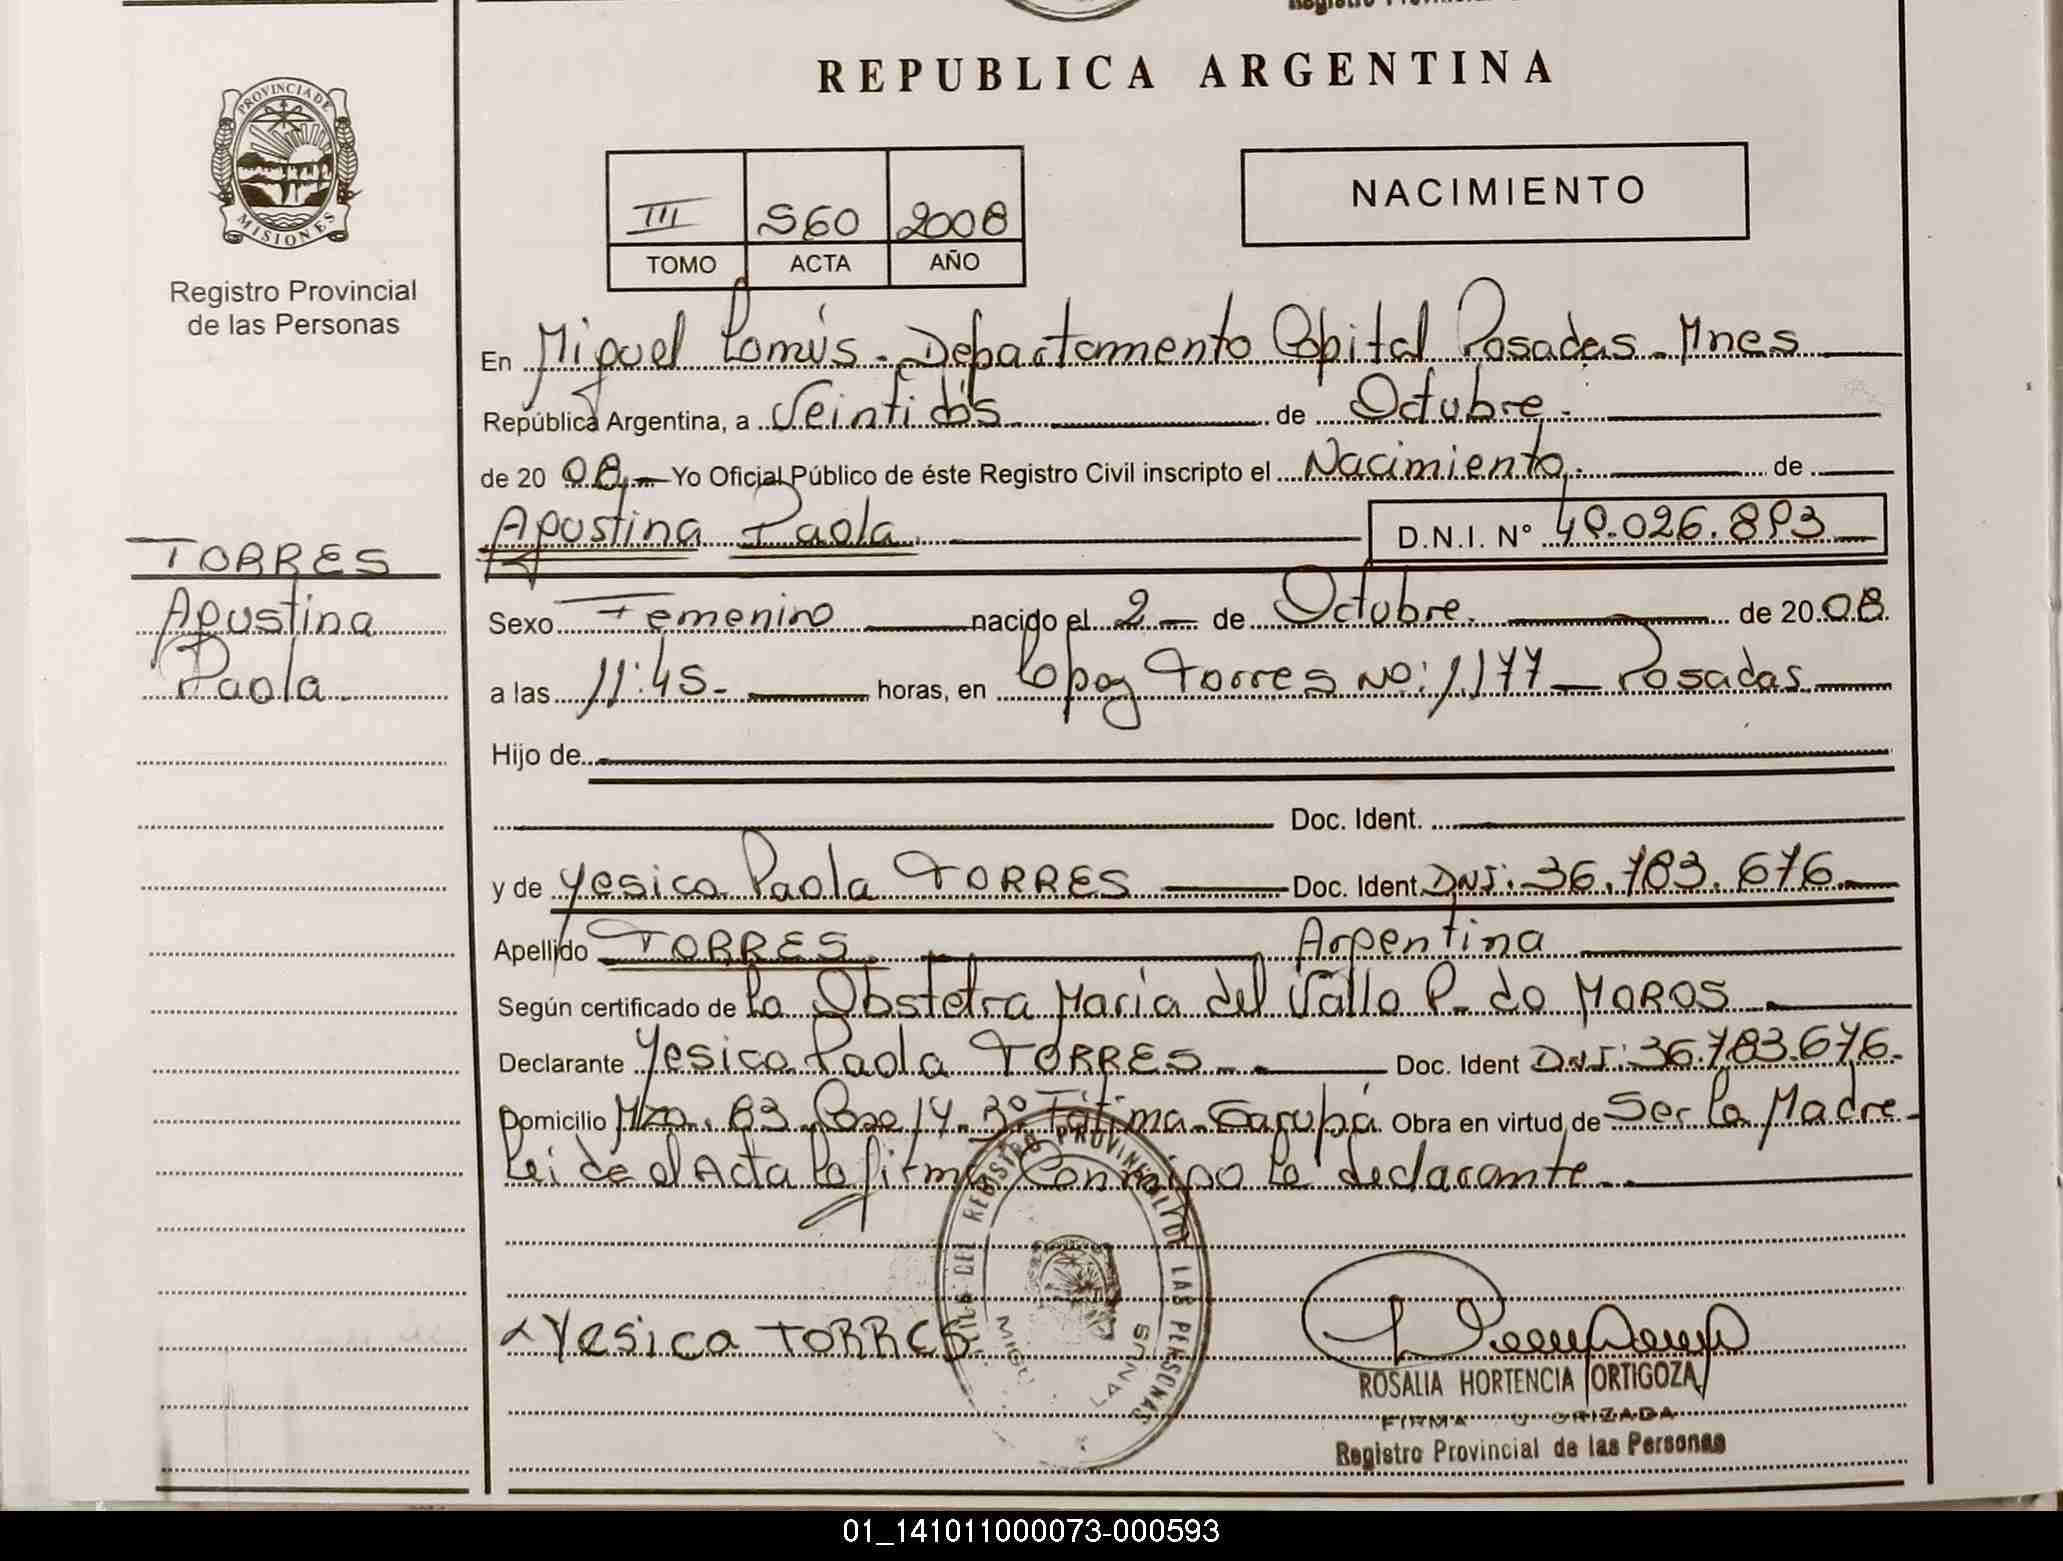 Registro Provincial
REPUBLICA ARGENTINA
PROVINCIA DE
MISIONES
Registro Provincial
de las Personas
III S60 2008
TOMO ACTA AÑO
NACIMIENTO
En Miguel Lanús - Departamento Capital Posadas - Mnes
República Argentina, a Veintidós de Octubre.
de 20 08, Yo Oficial Público de éste Registro Civil inscripto el Nacimiento. de
Agustina Paola D.N.I. N°
TORRES
Agustina
Paola
Sexo Femenino nacido el 2 de Octubre de 20 08.
a las 11:45 horas, en Lopez Torres No: 1.177 - Posadas
Hijo de
Doc. Ident.
y de Yesica Paola TORRES Doc. Ident. DNI: 36.783.676
Apellido TORRES Argentina
Según certificado de La Obstetra Maria del Valle P. de MOROS
Declarante Yesica Paola TORRES Doc. Ident DNI: 36.783.676.
Domicilio Mza. 83 Casa 14 Fátima - Garupá Obra en virtud de Ser la Madre
Leida el Acta La firma Conmigo la declarante
DEL REGISTRO PROVINCIAL DE LAS PERSONAS
Yesica TORRES
ROSALIA HORTENCIA ORTIGOZA
FIRMA
Registro Provincial de las Personas
01_141011000073-000593